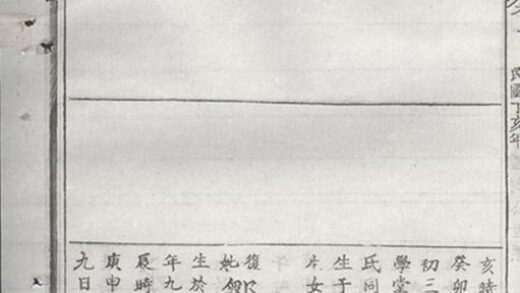 民國丁亥年
亥時
癸卯
初三
學堂
氏同
生于
女
復
生於
年九
辰時
庚申
九日